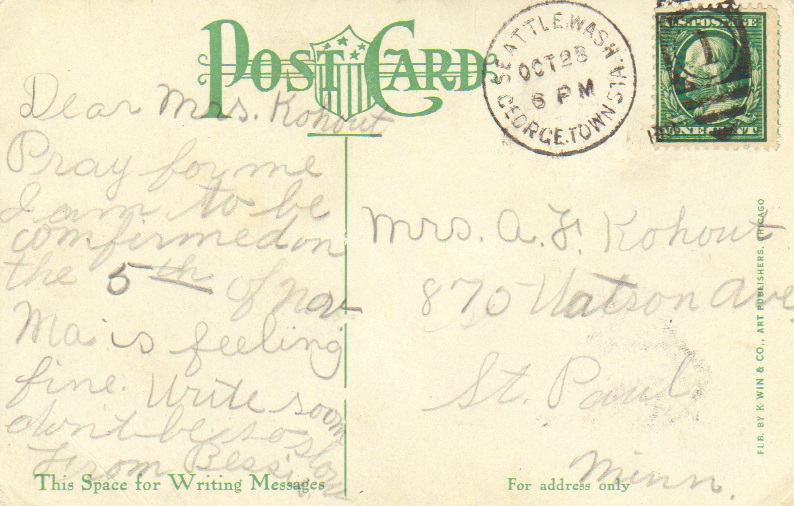 POST CARD
SEATTLE, WASH.
OCT 28
6 PM
GEORGETOWN STA.
U.S. POSTAGE
ONE CENT
1
Dear Mrs. Kohout
Pray for me
I am to be
comfirmed on
the 5th of Nov
Ma is feeling
fine. Write soon
dont be so slow
From Bessie
Mrs. A. F. Kohout
870 Watson Ave
St. Paul
Minn.
This Space for Writing Messages
For address only
PUB. BY K WIN & CO., ART PUBLISHERS, CHICAGO